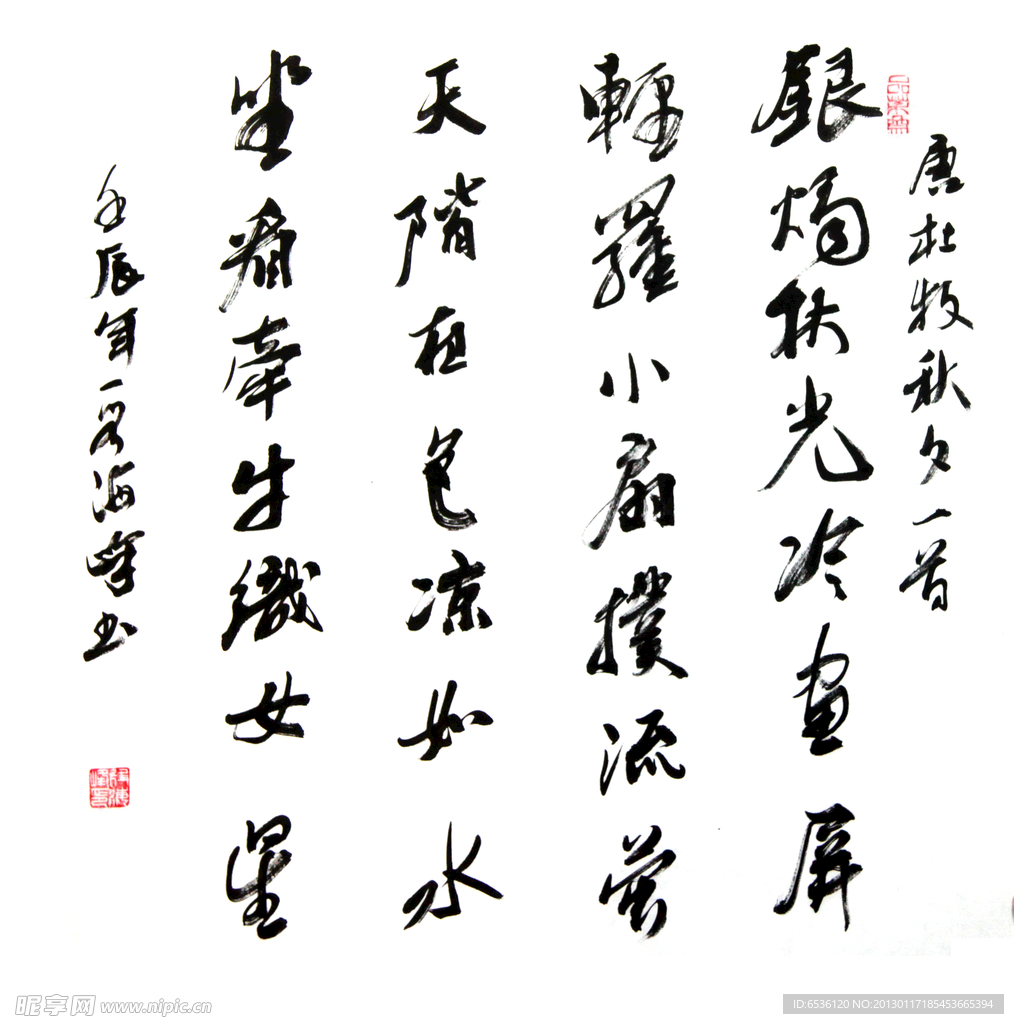 唐杜牧秋夕一首
銀燭秋光冷畫屏
輕羅小扇撲流螢
天階夜色凉如水
坐看牽牛織女星
壬辰年 海峰书
昵享网 www.nipic.cn
ID:6536120 NO:20130117185453665394